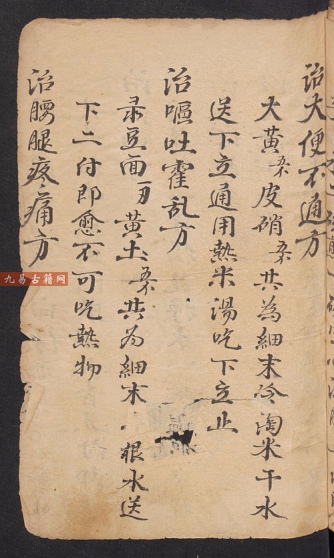 治大便不通方
大黄 皮硝 共為細末冷淘米干水
送下立通用熱米湯吃下立止
治嘔吐霍乱方
录豆面 黄土 共为細末 根水送
下二付即愈不可吃熱物
治腰腿疼痛方
九易古籍网